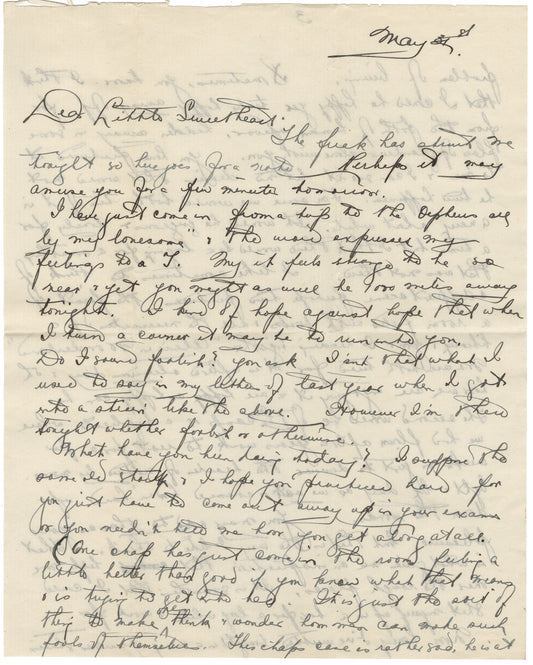 May 21st
Dear Little Sweetheart:
The freak has struck me
tonight so here goes for a note. Perhaps it may
amuse you for a few minutes tomorrow.
I have just come in from a trip to the Orpheus all
by my "lonesome" & the word expresses my
feelings to a T. My it feels strange to be so
near & yet you might as well be 1000 miles away
tonight. I kind of hope against hope that when
I turn a corner it may be to run into you.
Do I sound foolish? you ask. Isn't that what I
used to say in my letters of last year when I got
into a strain like the above. However I'm there
tonight whether foolish or otherwise.
What have you been doing today? I suppose the
same old stuff & I hope you practiced hard for
you just have to come out away up in your exams
or you needn't tell me how you get along at all.
One chap has just come in the room feeling a
little better than good if you know what that means
& is trying to get into bed. It is just the sort of
thing to make one think & wonder how men can make such
fools of themselves. This chaps case is rather sad, he is at